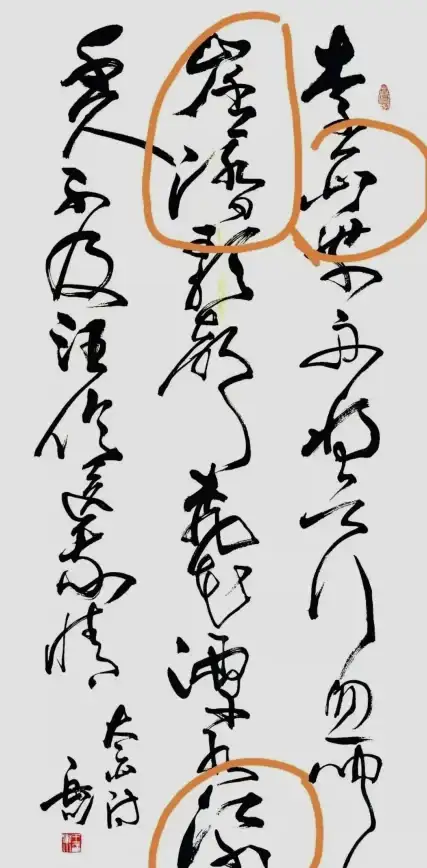 李白乘舟将欲行忽闻
岸上踏歌声桃花潭水深
不及汪伦送我情
太白诗